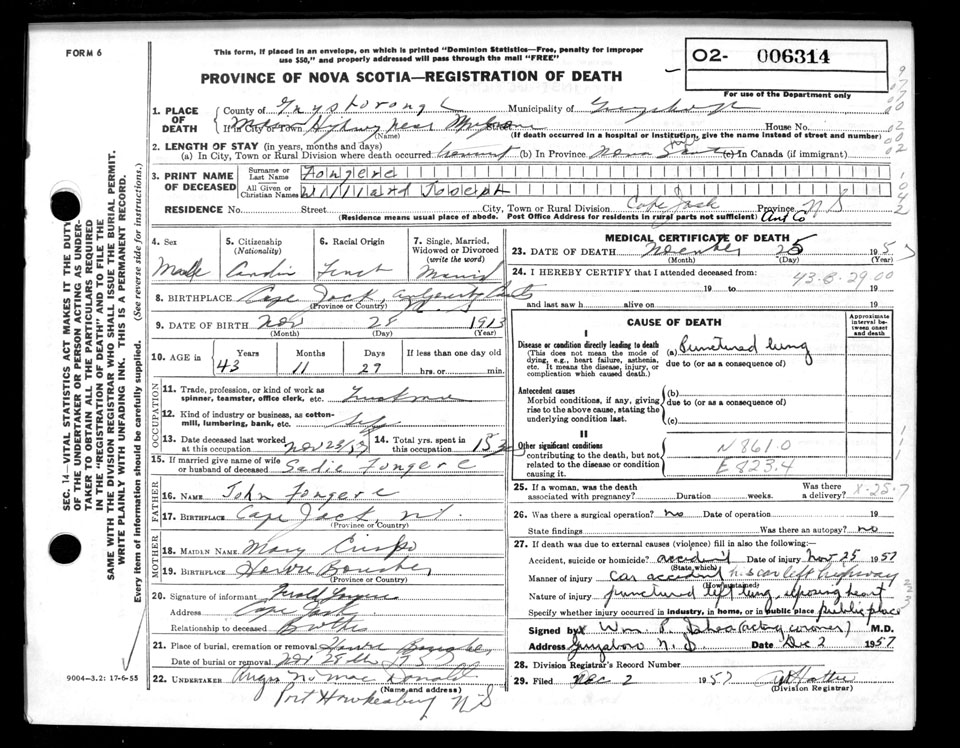 FORM 6
This form, if placed in an envelope, on which is printed "Dominion Statistics—Free, penalty for improper
use $50," and properly addressed will pass through the mail "FREE"
PROVINCE OF NOVA SCOTIA—REGISTRATION OF DEATH
O2- 006314
For use of the Department only
1. PLACE OF DEATH
County of Municipality of
If in City or Town near House No.
(Name)
(If death occurred in a hospital or institution, give the name instead of street and number)
2. LENGTH OF STAY (in years, months and days)
(a) In City, Town or Rural Division where death occurred (b) In Province (c) In Canada (if immigrant)
3. PRINT NAME OF DECEASED
Surname or Last Name Fongere
All Given or Christian Names Williard Joseph
RESIDENCE No. Street City, Town or Rural Division Cape Jack Province N S
(Residence means usual place of abode. Post Office Address for residents in rural parts not sufficient) Ant Co
4. Sex Male
5. Citizenship (Nationality)
6. Racial Origin
7. Single, Married, Widowed or Divorced (write the word)
8. BIRTHPLACE Cape Jack,
(Province or Country)
9. DATE OF BIRTH Nov 28 1913
(Month) (Day) (Year)
10. AGE in Years 43 Months 11 Days 27 If less than one day old hrs. or min.
OCCUPATION
11. Trade, profession, or kind of work as spinner, teamster, office clerk, etc.
12. Kind of industry or business, as cotton-mill, lumbering, bank, etc.
13. Date deceased last worked at this occupation Nov 23/57
14. Total yrs. spent in this occupation 15
15. If married give name of wife or husband of deceased Sadie Fongere
FATHER
16. NAME John Fongere
17. BIRTHPLACE Cape Jack,
(Province or Country)
MOTHER
18. MAIDEN NAME Mary Crispo
19. BIRTHPLACE Havre Boucher
(Province or Country)
20. Signature of informant
Address Cape Jack
Relationship to deceased Brother
21. Place of burial, cremation or removal Havre Boucher,
Date of burial or removal Nov 28th 1957
22. UNDERTAKER Angus MacDonald
(Name and address)
Port Hawkesbury N S
9004-3.2: 17-6-55
MEDICAL CERTIFICATE OF DEATH
23. DATE OF DEATH November 25 1957
(Month) (Day) (Year)
24. I HEREBY CERTIFY that I attended deceased from:
43-8-29 00
19 to 19
and last saw h alive on 19
CAUSE OF DEATH
Approximate interval between onset and death
I
Disease or condition directly leading to death (a) Punctured lung
(This does not mean the mode of dying, e.g., heart failure, asthenia, etc. It means the disease, injury, or complication which caused death.)
due to (or as a consequence of)
Antecedent causes (b)
Morbid conditions, if any, giving rise to the above cause, stating the underlying condition last.
due to (or as a consequence of)
(c)
II
Other significant conditions
contributing to the death, but not related to the disease or condition causing it.
N 861.0
E 823.4
25. If a woman, was the death associated with pregnancy? Duration weeks. Was there a delivery?
X-25-7
26. Was there a surgical operation? no Date of operation 19
State findings Was there an autopsy? no
27. If death was due to external causes (violence) fill in also the following:—
Accident, suicide or homicide? accident Date of injury Nov 25 1957
(State which)
Manner of injury car accident car left highway
(How sustained)
Nature of injury punctured left lung, exposing heart
Specify whether injury occurred in industry, in home, or in public place public place
Signed by Wm P. (acting coroner) M.D.
Address N. S Date Dec 2 1957
28. Division Registrar's Record Number
29. Filed Dec 2 1957
(Division Registrar)
SEC. 14—VITAL STATISTICS ACT MAKES IT THE DUTY
OF THE UNDERTAKER OR PERSON ACTING AS UNDER-
TAKER TO OBTAIN ALL THE PARTICULARS REQUIRED
IN THE "REGISTRATION OF DEATH" AND TO FILE THE
SAME WITH THE DIVISION REGISTRAR WHO SHALL ISSUE THE BURIAL PERMIT.
WRITE PLAINLY WITH UNFADING INK. THIS IS A PERMANENT RECORD.
Every item of information should be carefully supplied. (See reverse side for instructions.)